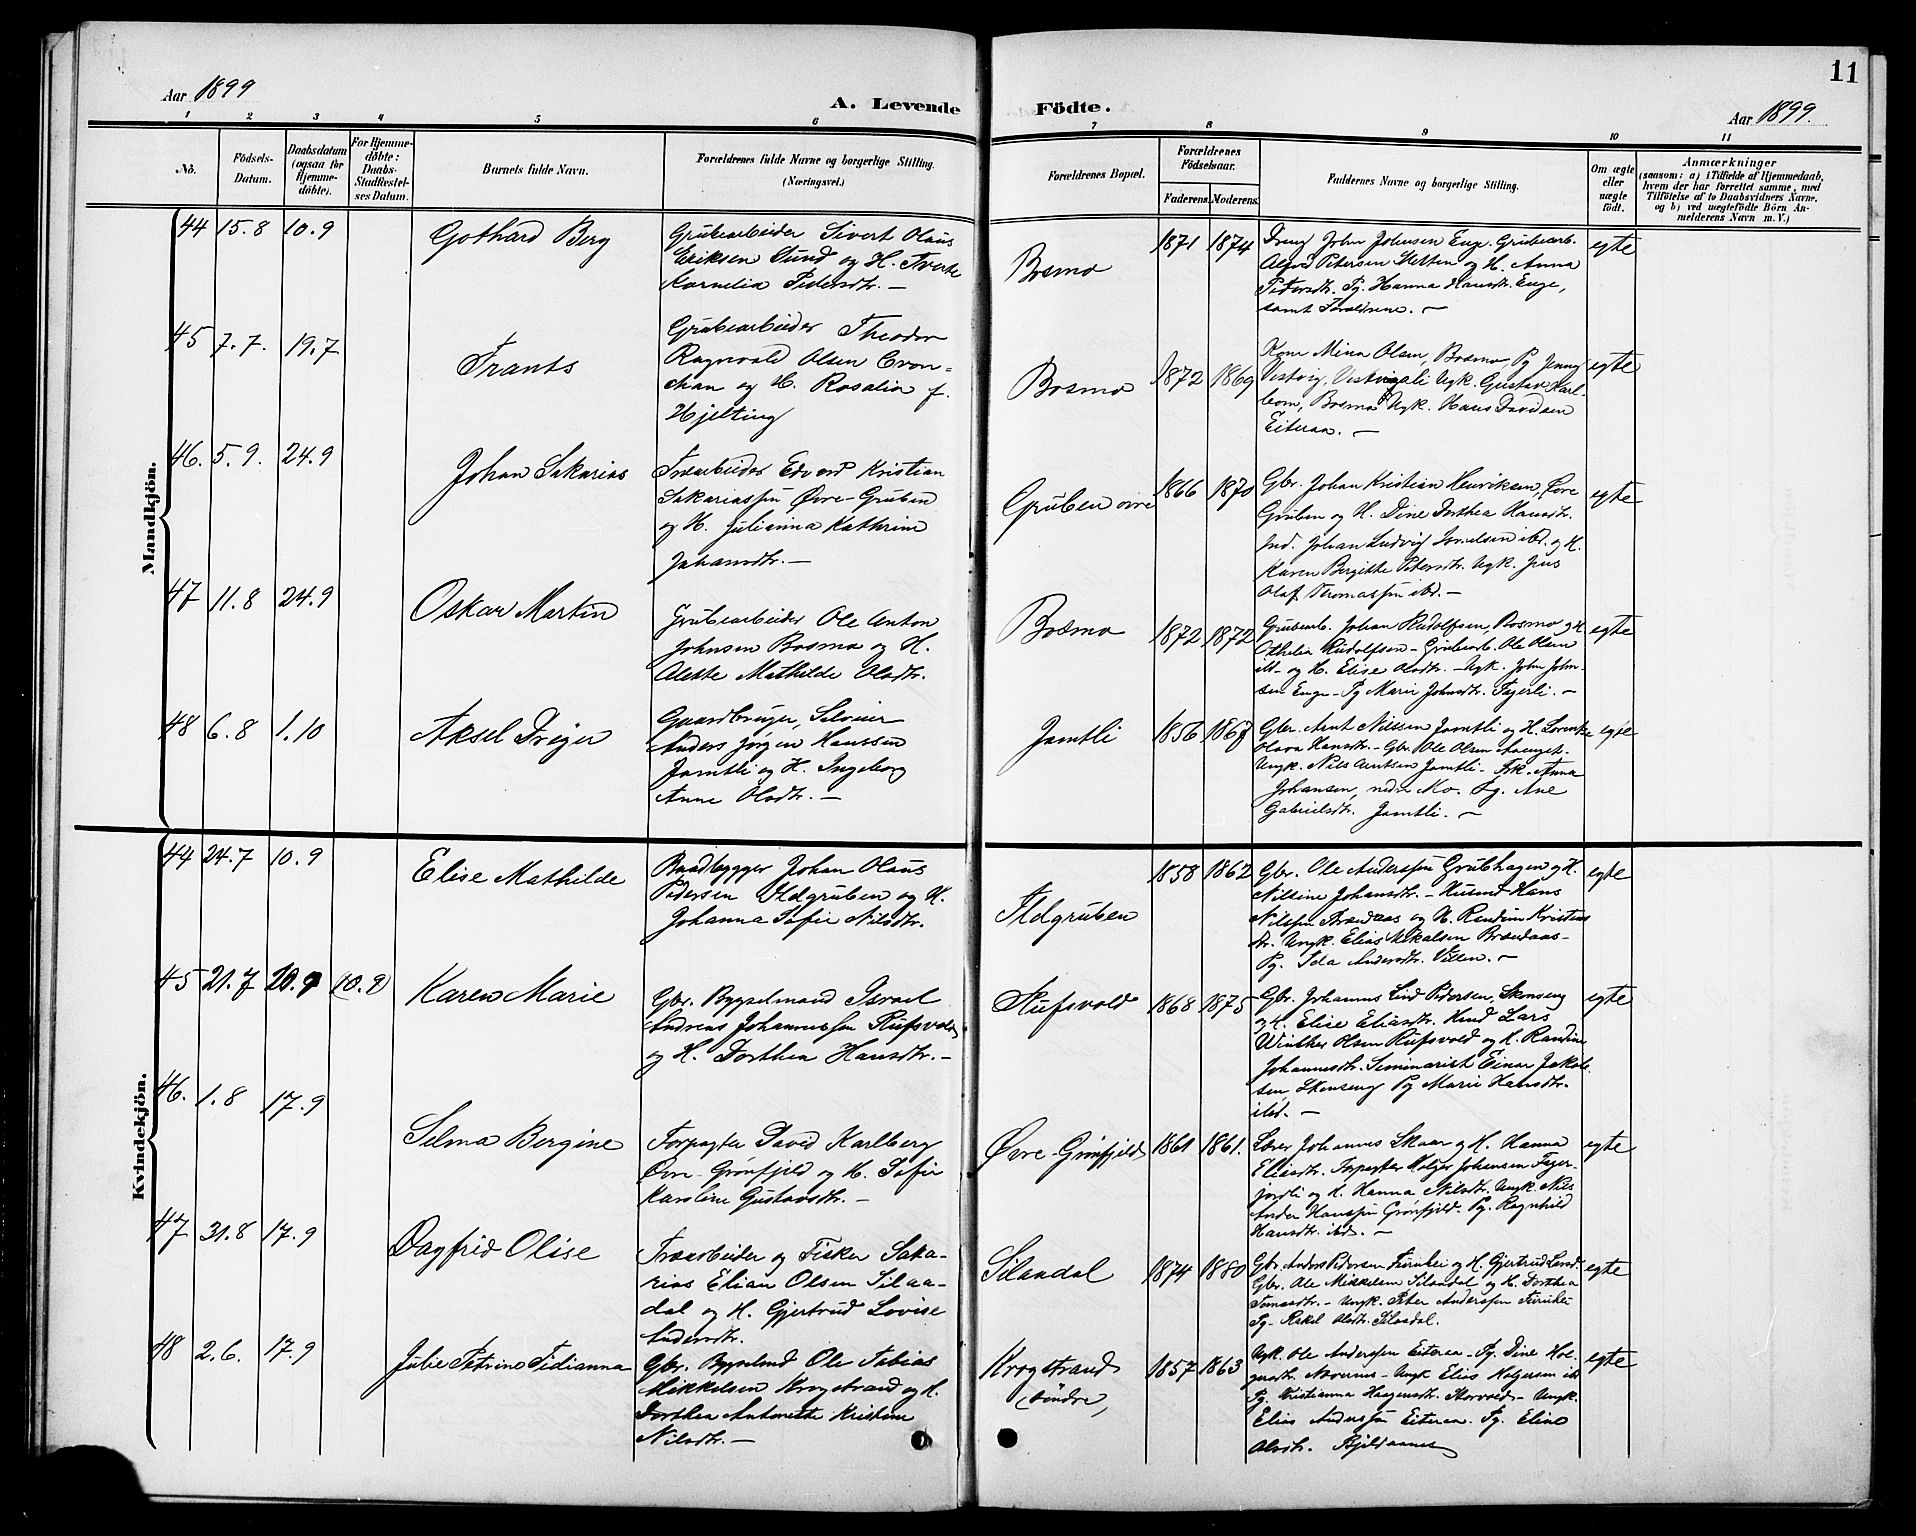 Aar 1899
A. Levende
Födte.
Aar 1899.
11
1 2 3 4 5 6 7 8 9 10 11
No.
Födsels-
Datum.
Daabsdatum
(ogsaa for
Hjemme-
döbte).
For Hjemme-
döbte:
Daabs-
Stadfæstel-
ses Datum.
Barnets fulde Navn.
Forældrenes fulde Navne og borgerlige Stilling.
(Næringsvei.)
Forældrenes Bopæl.
Forældrenes
Födselsaar.
Faderens.
Moderens.
Faddernes Navne og borgerlige Stilling.
Om ægte
eller
uægte
født.
Anmærkninger
(saasom: a) i Tilfælde af Hjemmedaab,
hvem der har forrettet samme, med
Tilföielse af to Daabsvidners Navne,
og b) ved uægtefödte Börn An-
melderens Navn m. V.)
Mandkjön.
44 15.8 10.9
Gothard Berg
Grubearbeider Sivert Olaus
Eriksen Sund og H.
Kornelia Pedersdtr. —
Bosmo
1871 1874
Dreng John Johnsen Enge. Grubearb.
Alfred Petersen Sletten og H. Anna
Pedersdtr. Pg. Hanna Hansdtr. Enge,
samt Forældrene. —
egte
45 7.7. 19.7
Frants
Grubearbeider Theodor
Ragnvald Olsen Cron-
chan og H. Rosalia f.
Hjelting
Bosmo
1872 1869
Kone Mina Olsen, Bosmo, Pg Jenny
Vestvig, Vestvigeli Ugk. Gustav Karl-
bom, Bosmo Ugk. Hans Davidsen
Eiteraa. —
egte
46. 5.9. 24.9
Johan Sakarias
Træarbeider Edvard Kristian
Sakariassen Øvre-Gruben
og H. Julianna Kathrine
Johansdtr. —
Gruben øvre
1866 1870
Gbr. Johan Kristian Henriksen, Øvre
Gruben og H. Dine Dorthea Hansdtr.
Ind. Johan Ludvig Israelsen ibd. og H.
Karen Bergitte Petersdtr. Ugk. Jens
Olaf Thomassen ibd. —
egte
47 11.8 24.9
Oskar Martin
Grubearbeider Ole Anton
Johnsen Bosmo og H.
Alette Mathilde Olsdtr.
Bosmo
1872 1872
Grubearb. Johan Rudolfsen, Bosmo og H.
Othelia Rudolfsen – Grubearb. Ole Olsen
ibd – og H. Elise Olsdtr. – Ugk. John John-
sen Enge – Pg Marie Johnsdtr. Fagerli. —
egte
48 6.8 1.10
Aksel Dreyer
Gaardbruger,
Anders Jørgen Hanssen
Jamtli og H. Ingeborg
Anne Olsdtr. —
Jamtli
1856 1867
Gbr. Arnt Nilssen Jamtli og H. Lorentze
Olava Hansdtr. – Gbr. Ole Olsen
Ungk. Nils Arntsen Jamtli – Anna
Johansen, nedre Mo. Pg. Ane
Gabrielsdtr. Jamtli. —
egte
Kvindekjön.
44 24.7 10.9
Elise Mathilde
Baadbygger Johan Olaus
Pedersen Ildgruben og H.
Johanna Sofie Nilsdtr.
Ildgruben
1858 1862
Gbr. Ole Anderssen Grubhagen og H.
Nilsine Johansdtr. – Husmd Hans
Nilssen og H. Randine Kristians
dtr. Ungk. Elias Mikalsen Brændaas –
Pg. Ida Andersdtr. Villen. —
egte
45 21.7 10.9 (10.9)
Karen Marie
Gbr. Bygselmand Israel
Andreas Johannessen Rufsvold
og H. Dorthea Hansdtr. —
Rufsvold
1868 1875
Gbr. Johannes Lind Pedersen, Skonseng
og H. Elise Eliasdtr. Hmd Lars
Winther Olsen Rufsvold og H. Randine
Johannesdtr. Seminarist Einar Jakob-
sen, Skonseng Pg Marie Hansdtr.
ibd. —
egte
46. 1.8 17.9
Selma Bergine
Forpagter David Karlberg
Øvre-Grønfjeld og H. Sofie
Karoline Gustavsdtr. —
Øvre-Grønfjeld
1861 1861.
Johannes Skaar og H. Hanna
Eliasdtr. Forpagter Holger Johansen Fager-
jordli og H. Hanna Nilsdtr. Ungk. Nils
Ander Hanssen Grønfjeld. Pg. Ragnhild
Hansdtr. ibd. —
egte
47 31.8 17.9
Dagfrid Olise
Træarbeider og Fisker Saka-
rias Elian Olsen Silaa-
dal og H. Gjertrud Lovise
Andersdtr.
Silaadal
1874 1880
Gbr. Anders Pedersen Furuhei og H. Gjertrud
Gbr. Ole Mikkelsen Silaadal og H. Dorthea
Tomasdtr. – Ungk. Peter Anderssen Furuhei
Pg. Rakel Olsdtr. Silaadal.
egte
48 2.6. 17.9
Julie Petrine Fedianna
Gbr. Bygselmd Ole Tobias
Mikkelsen Krogstrand og H.
Dorthea Antonette Kristine
Nilsdtr. —
Krogstrand
søndre,
1857 1863
Ugk. Ole Anderssen Eiteraa – Pg. Dine Hol-
gersdtr. Nævernes – Ungk Elias Holgersen ib
Pg. Kristianna Haagensdtr. Storvold – Ungk.
Elias Anderssen Eiteraa. Pg. Eline
Olsdtr.
egte